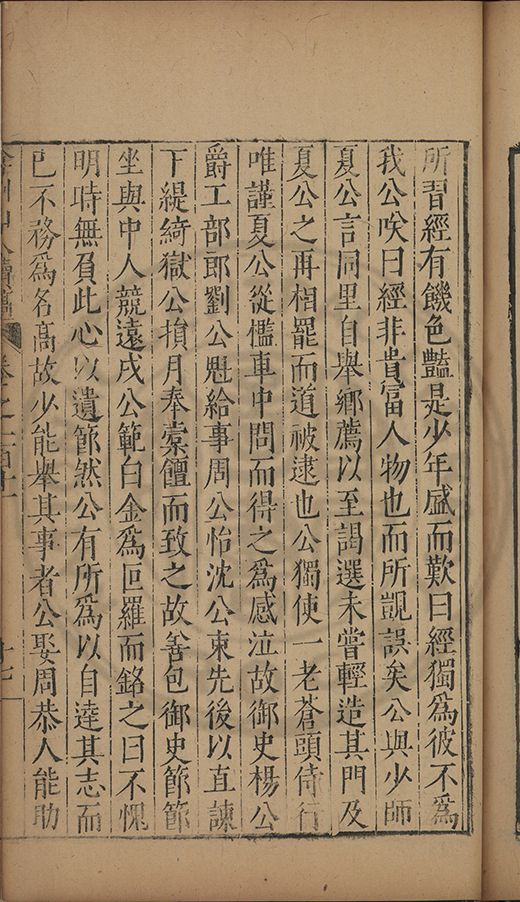 所習經有饑色豔是少年盛而歎曰經獨爲彼不爲
我公咲曰經非貴富人物也而所覬誤矣公與少師
夏公言同里自舉鄉薦以至謁選未嘗輕造其門及
夏公之再相罷而道被逮也公獨使一老蒼頭侍行
唯謹夏公從檻車中問而得之爲感泣故御史楊公
爵工部郎劉公魁給事周公怡沈公東先後以直諫
下緹綺獄公損月奉棠饘而致之故善包御史節節
坐與中人競遠戍公範白金爲叵羅而銘之曰不愧
明時無負此心以遺節然公有所爲以自達其志而
已不務爲名高故少能舉其事者公娶周恭人能助
弇州山人續稿 卷之一百十一